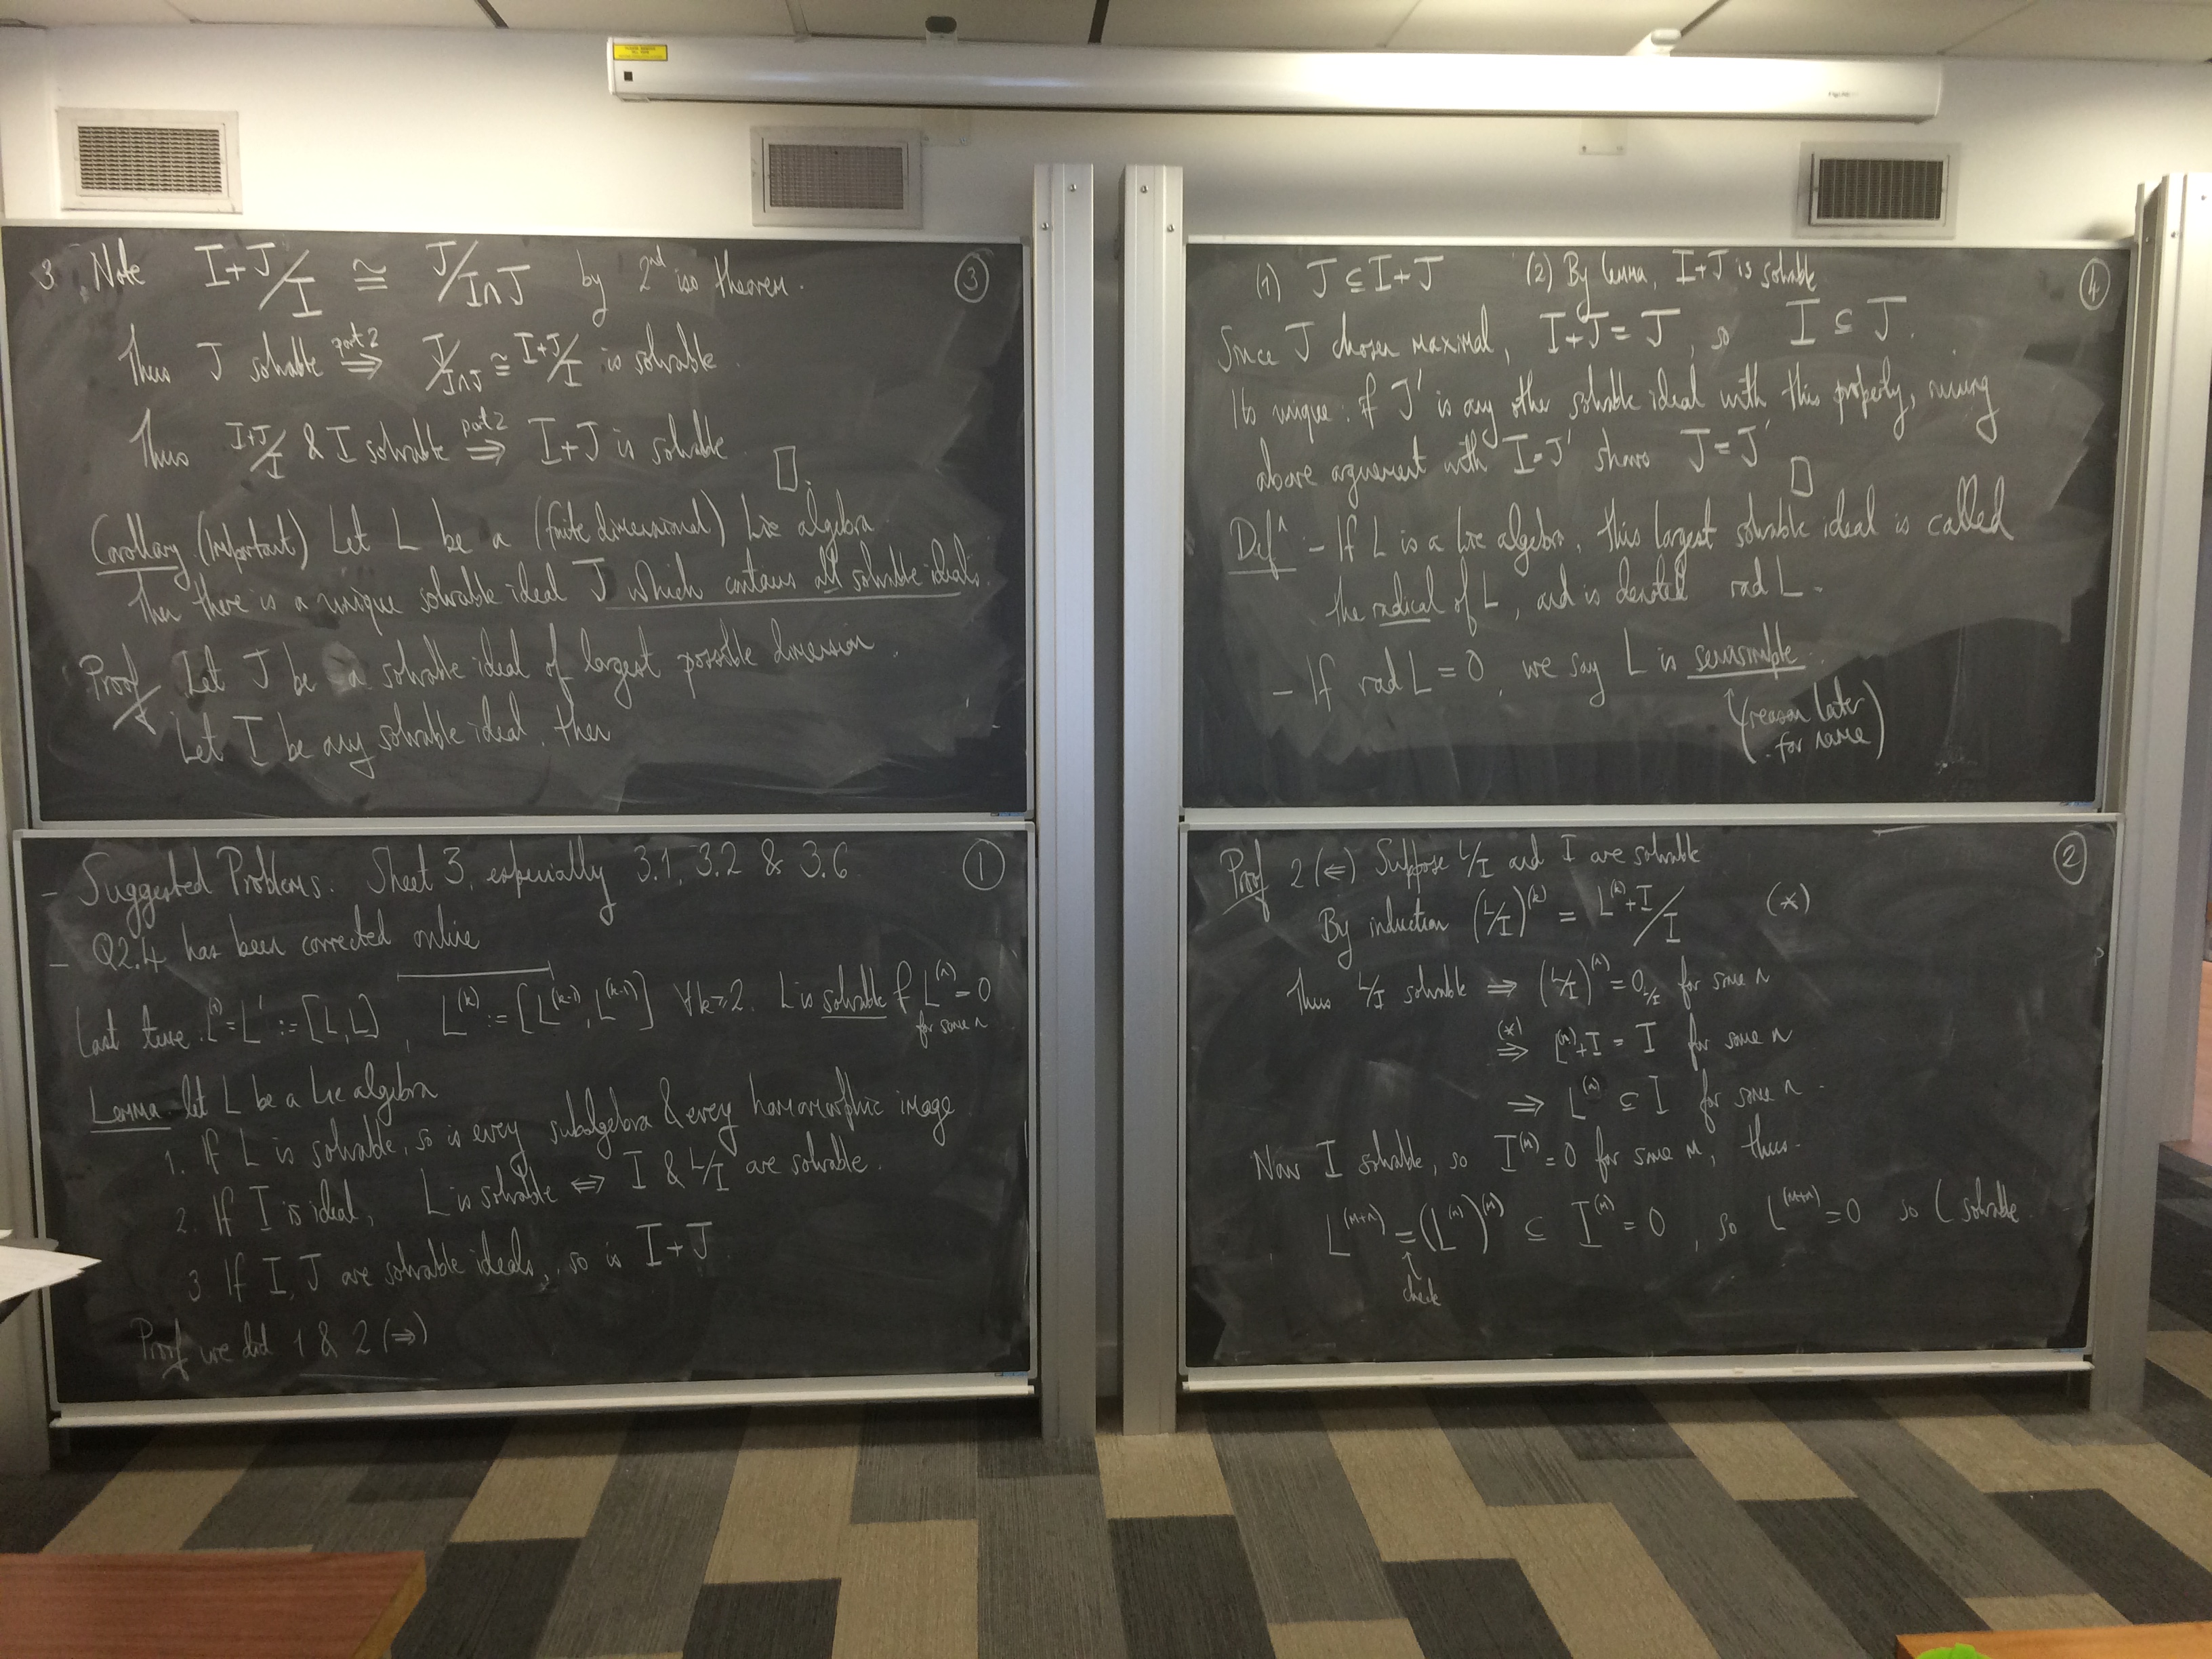 ①
- Suggested Problems: Sheet 3, especially 3.1, 3.2 & 3.6
- Q2.4 has been corrected online
Last time: L⁽¹⁾ = L' := [L,L], L⁽ᵏ⁾ := [L⁽ᵏ⁻¹⁾, L⁽ᵏ⁻¹⁾] ∀k≥2. L is solvable if L⁽ⁿ⁾ = 0
for some n
Lemma let L be a Lie algebra
1. If L is solvable, so is every subalgebra & every homomorphic image
2. If I is ideal, L is solvable ⇔ I & L/I are solvable.
3 If I, J are solvable ideals, so is I+J.
Proof we did 1 & 2 (⇒)
②
Proof 2 (⇐) Suppose L/I and I are solvable
By induction (L/I)⁽ᵏ⁾ = L⁽ᵏ⁾+I/I (*)
Thus L/I solvable ⇒ (L/I)⁽ⁿ⁾ = 0_{L/I} for some n
(*)
⇒ L⁽ⁿ⁾+I = I for some n
⇒ L⁽ⁿ⁾ ⊆ I for some n.
Now I solvable, so I⁽ᵐ⁾ = 0 for some m, thus
L⁽ᵐ⁺ⁿ⁾ = (L⁽ⁿ⁾)⁽ᵐ⁾ ⊆ I⁽ᵐ⁾ = 0, so L⁽ᵐ⁺ⁿ⁾ = 0 so L solvable
↑
check
③
3. Note I+J/I ≅ J/I∩J by 2nd iso theorem.
part 2
Thus J solvable ⇒ J/I∩J ≅ I+J/I is solvable.
part 2
Thus I+J/I & I solvable ⇒ I+J is solvable. □.
Corollary (Important) Let L be a (finite dimensional) Lie algebra.
Then there is a unique solvable ideal J which contains all solvable ideals.
Proof Let J be a solvable ideal of largest possible dimension.
Let I be any solvable ideal, then
④
(1) J ⊆ I+J (2) By lemma, I+J is solvable
Since J chosen maximal, I+J = J, so I ⊆ J.
Its unique: if J' is any other solvable ideal with this property, running
above arguement with I=J' shows J=J' □
Defⁿ - If L is a Lie algebra, this largest solvable ideal is called
the radical of L, and is denoted rad L.
- If rad L = 0, we say L is semisimple.
(reason later
for name)